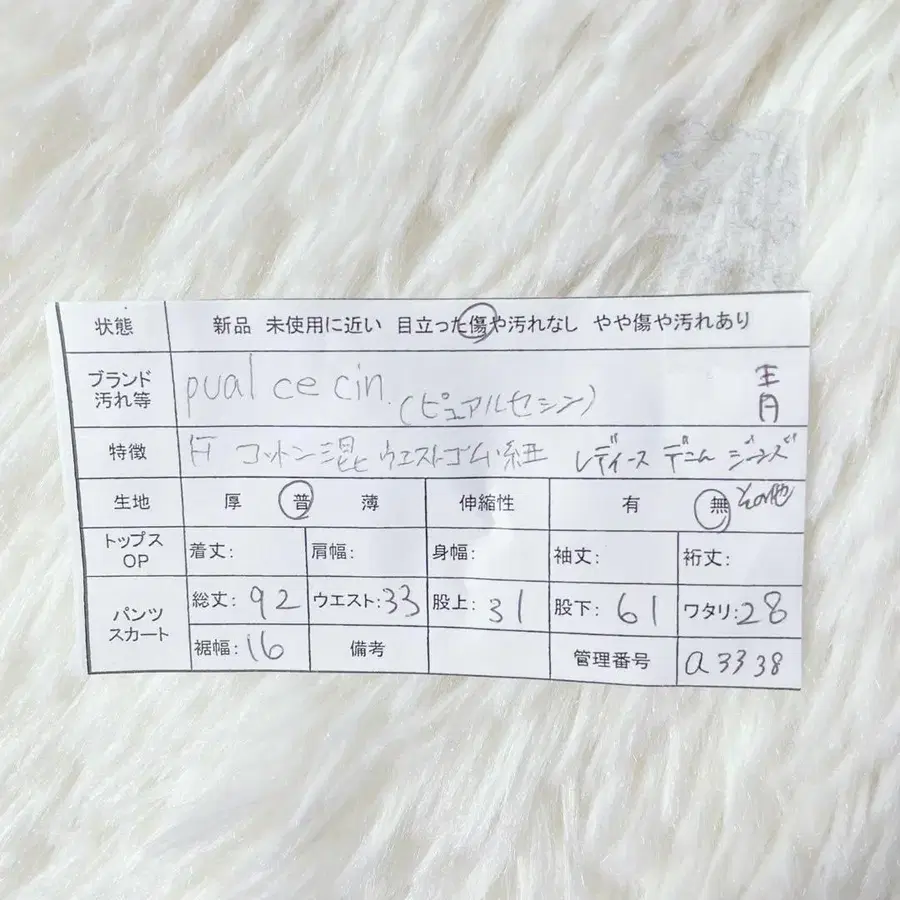 状態 新品 未使用に近い 目立った傷や汚れなし やや傷や汚れあり
ブランド
汚れ等 pual ce cin. (ピュアルセシン) 青
特徴 コットン混 ウエストゴム・紐 レディース デニム ジーンズ
生地 厚 普 薄 伸縮性 有 無 その他
トップス
OP 着丈: 肩幅: 身幅: 袖丈: 裄丈:
パンツ
スカート 総丈: 92 ウエスト: 33 股上: 31 股下: 61 ワタリ: 28
裾幅: 16 備考 管理番号 a3338